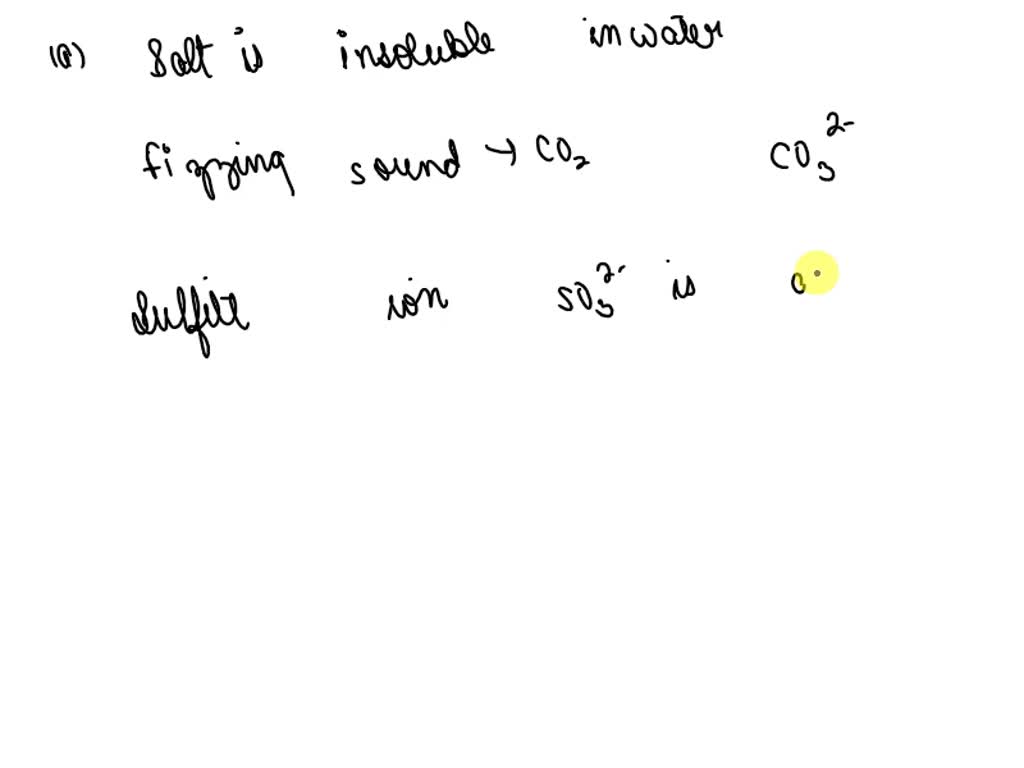 (a) Salt is insoluble in water
fizzing sound → CO₂ CO₃²⁻
Sulfite ion SO₃²⁻ is